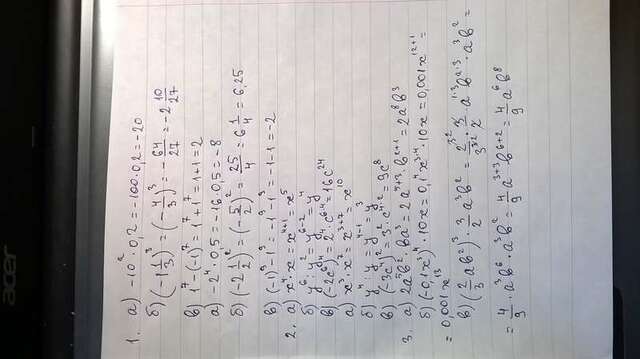 acer
1. а) -10² · 0,2 = -100 · 0,2 = -20
б) (-1 1/3)³ = (-4/3)³ = -64/27 = -2 10/27
в) 1⁷ - (-1)⁷ = 1⁷ + 1⁷ = 1 + 1 = 2
а) -2⁴ · 0,5 = -16 · 0,5 = -8
б) (-2 1/2)² = (-5/2)² = 25/4 = 6 1/4 = 6,25
в) (-1)⁹ - 1⁹ = -1⁹ - 1⁹ = -1 - 1 = -2
2. а) x⁴ · x = x⁴⁺¹ = x⁵
б) y⁶ : y² = y⁶⁻² = y⁴
в) (-2c⁶)⁴ = 2⁴ · c⁶·⁴ = 16c²⁴
а) x³ · x⁷ = x³⁺⁷ = x¹⁰
б) y⁴ : y = y⁴⁻¹ = y³
в) (-3c⁴)² = 3² · c⁴·² = 9c⁸
3. а) 2a⁵b² · ba³ = 2a⁵⁺³ · b²⁺¹ = 2a⁸b³
б) (-0,1x³)⁴ · 10x = 0,1⁴x³·⁴ · 10x = 0,001x¹²⁺¹ =
= 0,001x¹³
в) (2/3 ab²)³ · 3/2 a³b² = 2³²/3³² · 3/2 · a¹·³b²·³ · a³b² =
= 4/9 · a³b⁶ · a³b² = 4/9 a³⁺³b⁶⁺² = 4/9 a⁶b⁸